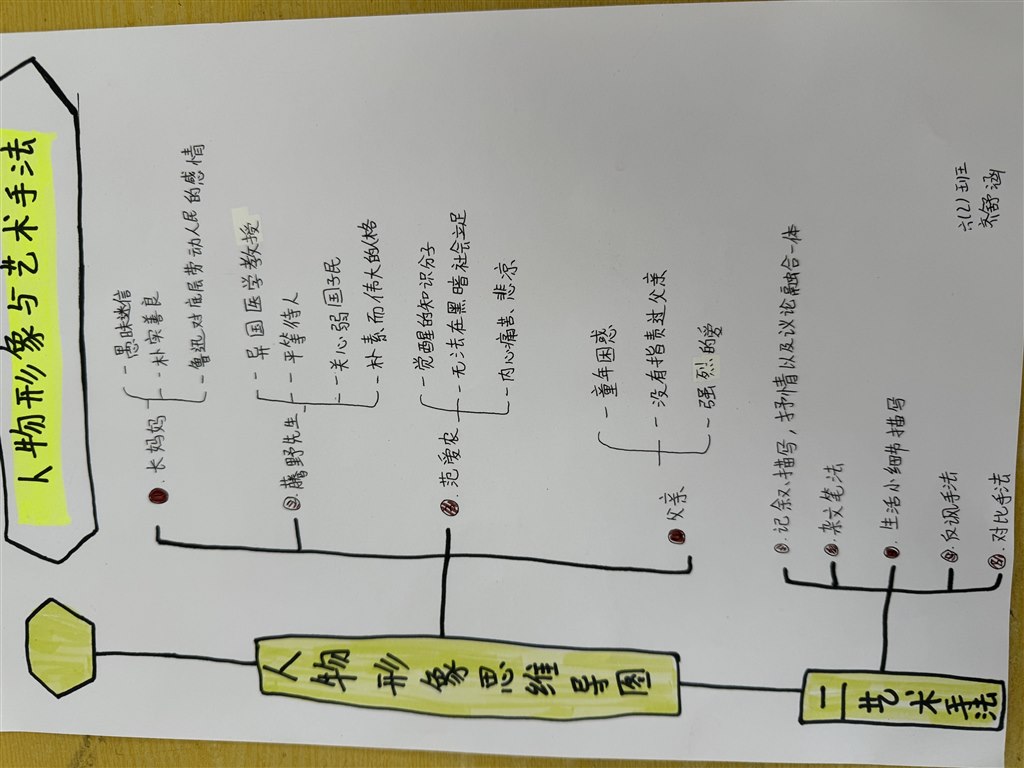 人物形象与艺术手法
人物形象思维导图
①.长妈妈
-愚昧迷信
-朴实善良
-鲁迅对底层劳动人民的感情
②藤野先生
-异国医学教授
-平等待人
-关心弱国子民
-朴素而伟大的人格
③.范爱农
-觉醒的知识分子
-无法在黑暗社会立足
-内心痛苦、悲凉
④父亲
-童年困惑
-没有指责过父亲
-强烈的爱
二艺术手法
①.记叙、描写,抒情以及议论融合一体
②.杂文笔法
③.生活小细节描写
④.反讽手法
⑤.对比手法
六(2)班
齐舒涵